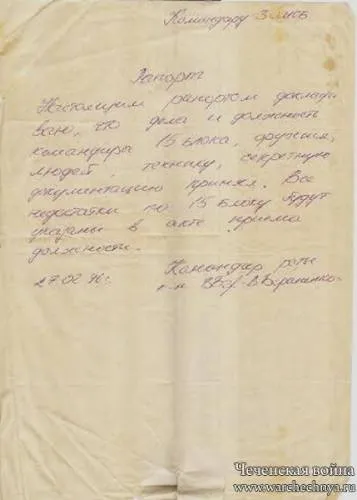 Командиру 3 МСБ
Рапорт
Настоящим рапортом доклады
ваю, что дела и должность
командира 15 блока, оружия,
людей, технику, секретную
документацию принял. Все
недостатки по 15 блоку будут
указаны в акте приема
должности.
Командир роты
27.02.96г.
Чеченская война
www.warchechnya.ru